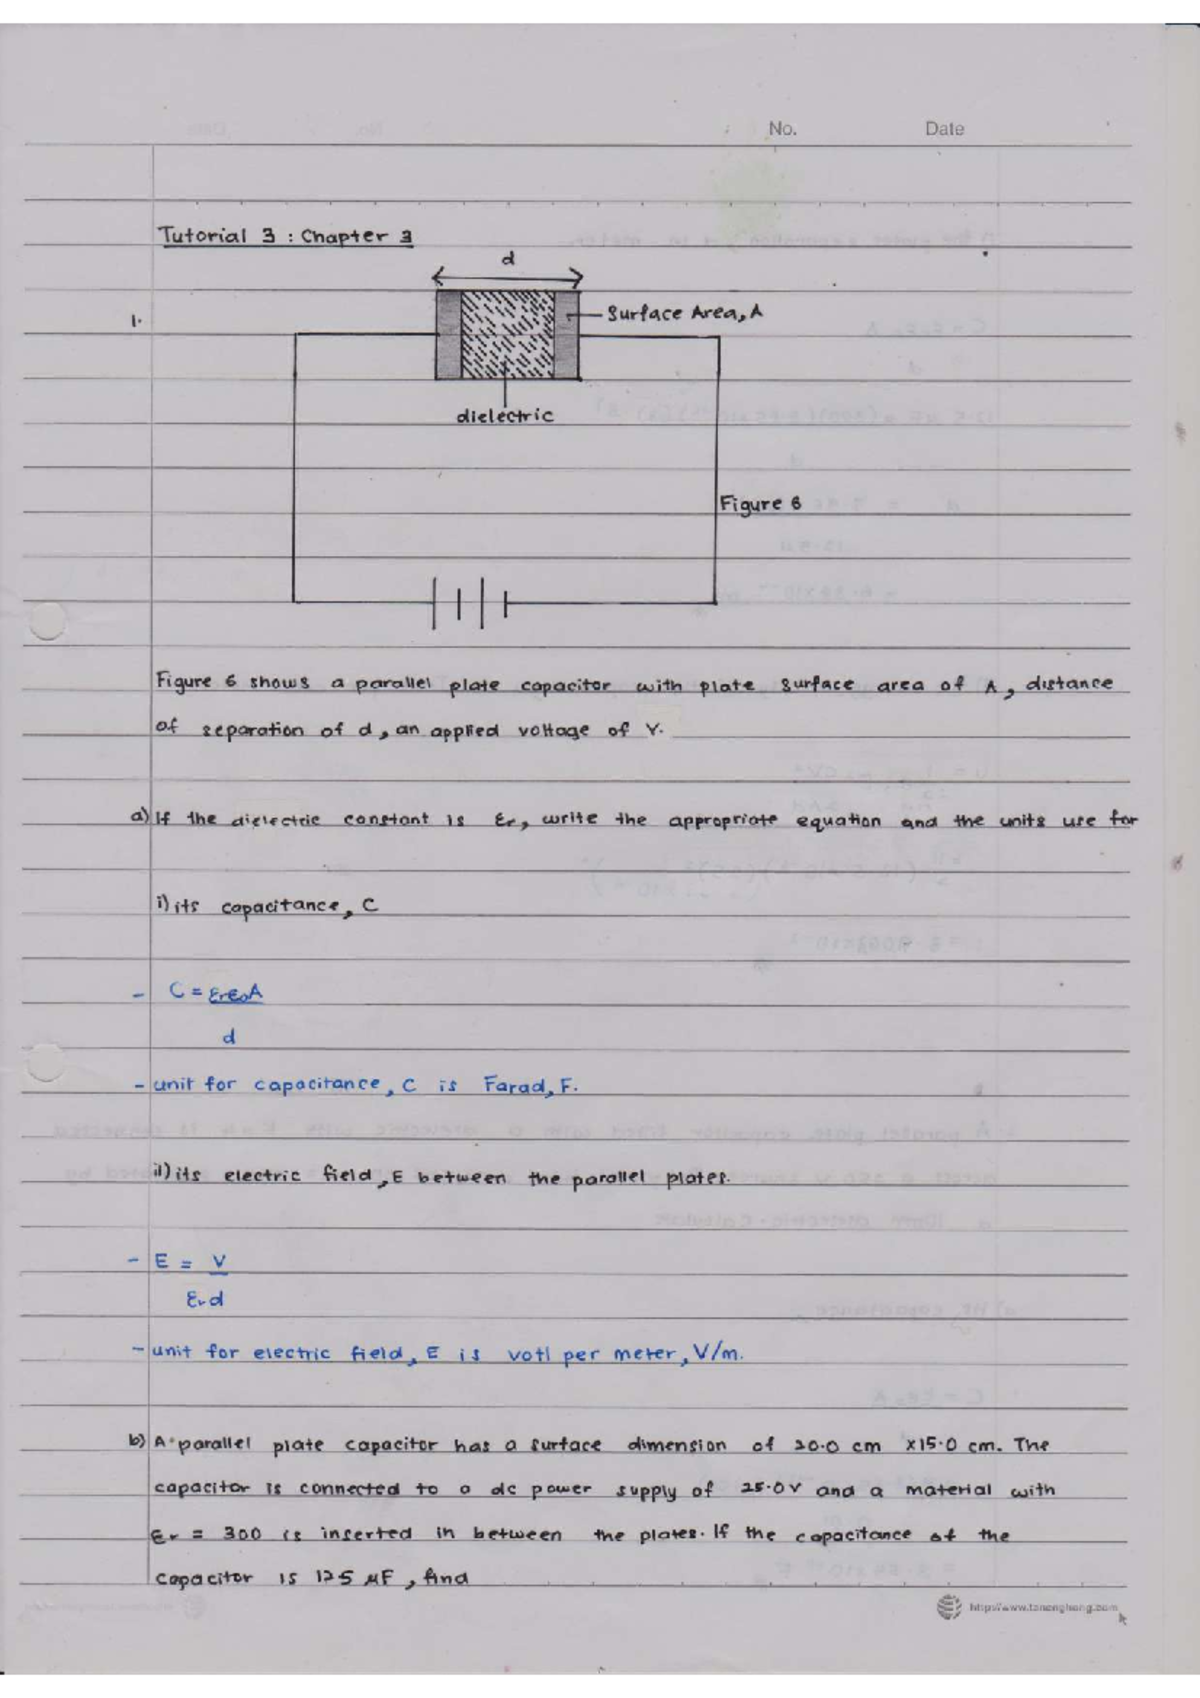 No. Date
Tutorial 3 : Chapter 3
d
1.
Surface Area, A
dielectric
Figure 6
Figure 6 shows a parallel plate capacitor with plate surface area of A, distance
of separation of d, an applied voltage of V.
a) If the dielectric constant is εr, write the appropriate equation and the units use for
i) its capacitance, C
- C = εrε₀A
d
- unit for capacitance, C is Farad, F.
ii) its electric field, E between the parallel plates.
- E = V
εrd
- unit for electric field, E is votl per meter, V/m.
b) A parallel plate capacitor has a surface dimension of 20.0 cm x15.0 cm. The
capacitor is connected to a dc power supply of 25.0V and a material with
εr = 300 is inserted in between the plates. If the capacitance of the
capacitor is 12.5 μF, find